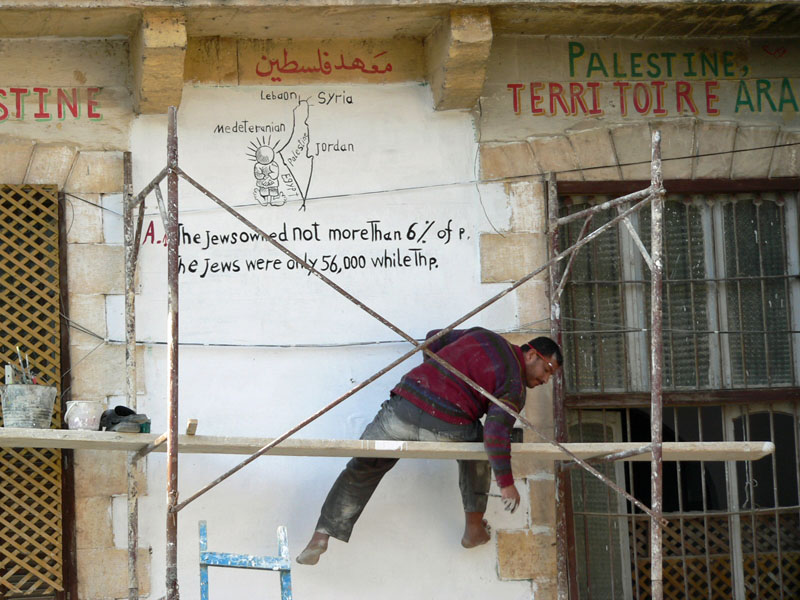 معهد فلسطين
STINE
PALESTINE,
TERRITOIRE ARA
Lebaon Syria
Medeteranian
Jordan
Palestine
Egypt
A. The Jews owned not more Than 6% of P.
The Jews were only 56,000 while The P.